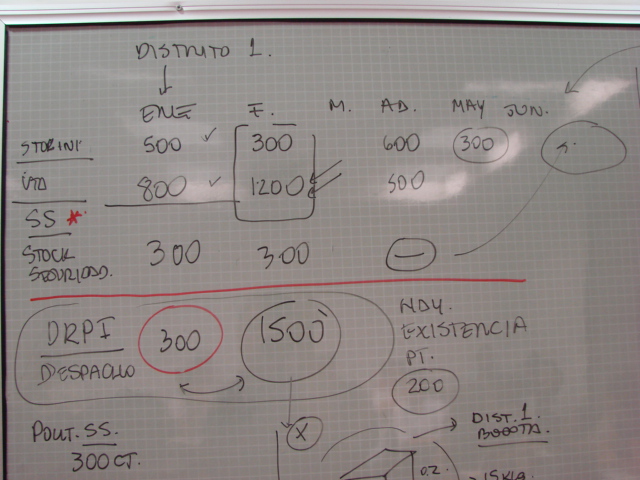 DISTRITO 1.
ENE F. M. AD. MAY JUN.
STOR INI 500 300 600 300
VTA 800 1200 500
SS *
STOCK SEGURIDAD. 300 300 —
DRPI 300 1500
DESPACHO
HOY.
EXISTENCIA
PT.
200
POLIT. SS.
300 CT.
X
DIST. 1.
BOGOTA.
0.2
15KG